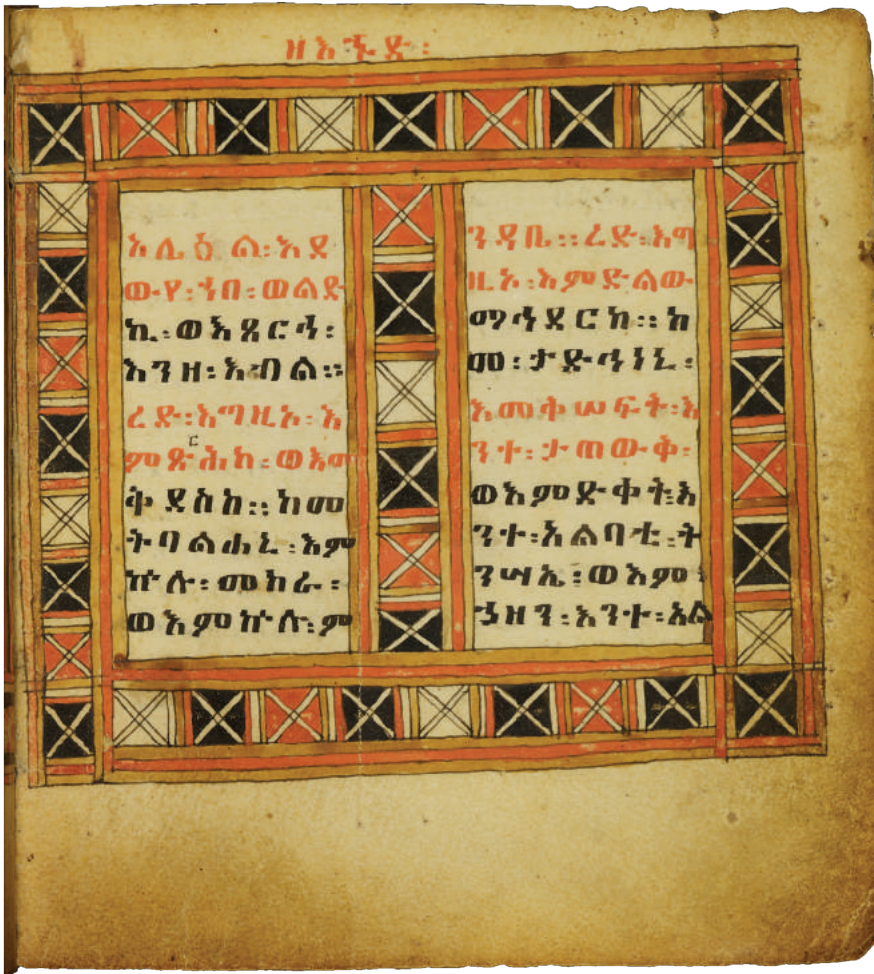 ዘእኁድ፡
አሌዕል፡እደ
ውየ፡ኀበ፡ወልድ
ኪ፡ወእጸርኅ፡
እንዘ፡እብል።
ረድ፡እግዚኦ፡እ
ምጽርሕከ፡ወእም
ቅደስከ።ከመ
ትባልሐኒ፡እም
ኵሉ፡መከራ፡
ወእምኵሉ፡ም
ንዳቤ።ረድ፡እግ
ዚኦ፡እምድልው
ማኅደርከ።ከ
መ፡ታድኅነኒ፡
እመቅሠፍት፡እ
ንተ፡ታጠውቅ፡
ወእምድቀት፡እ
ንተ፡አልባቲ፡ት
ንሣኤ፡ወእም፡
ኃዘን፡እንተ፡አል